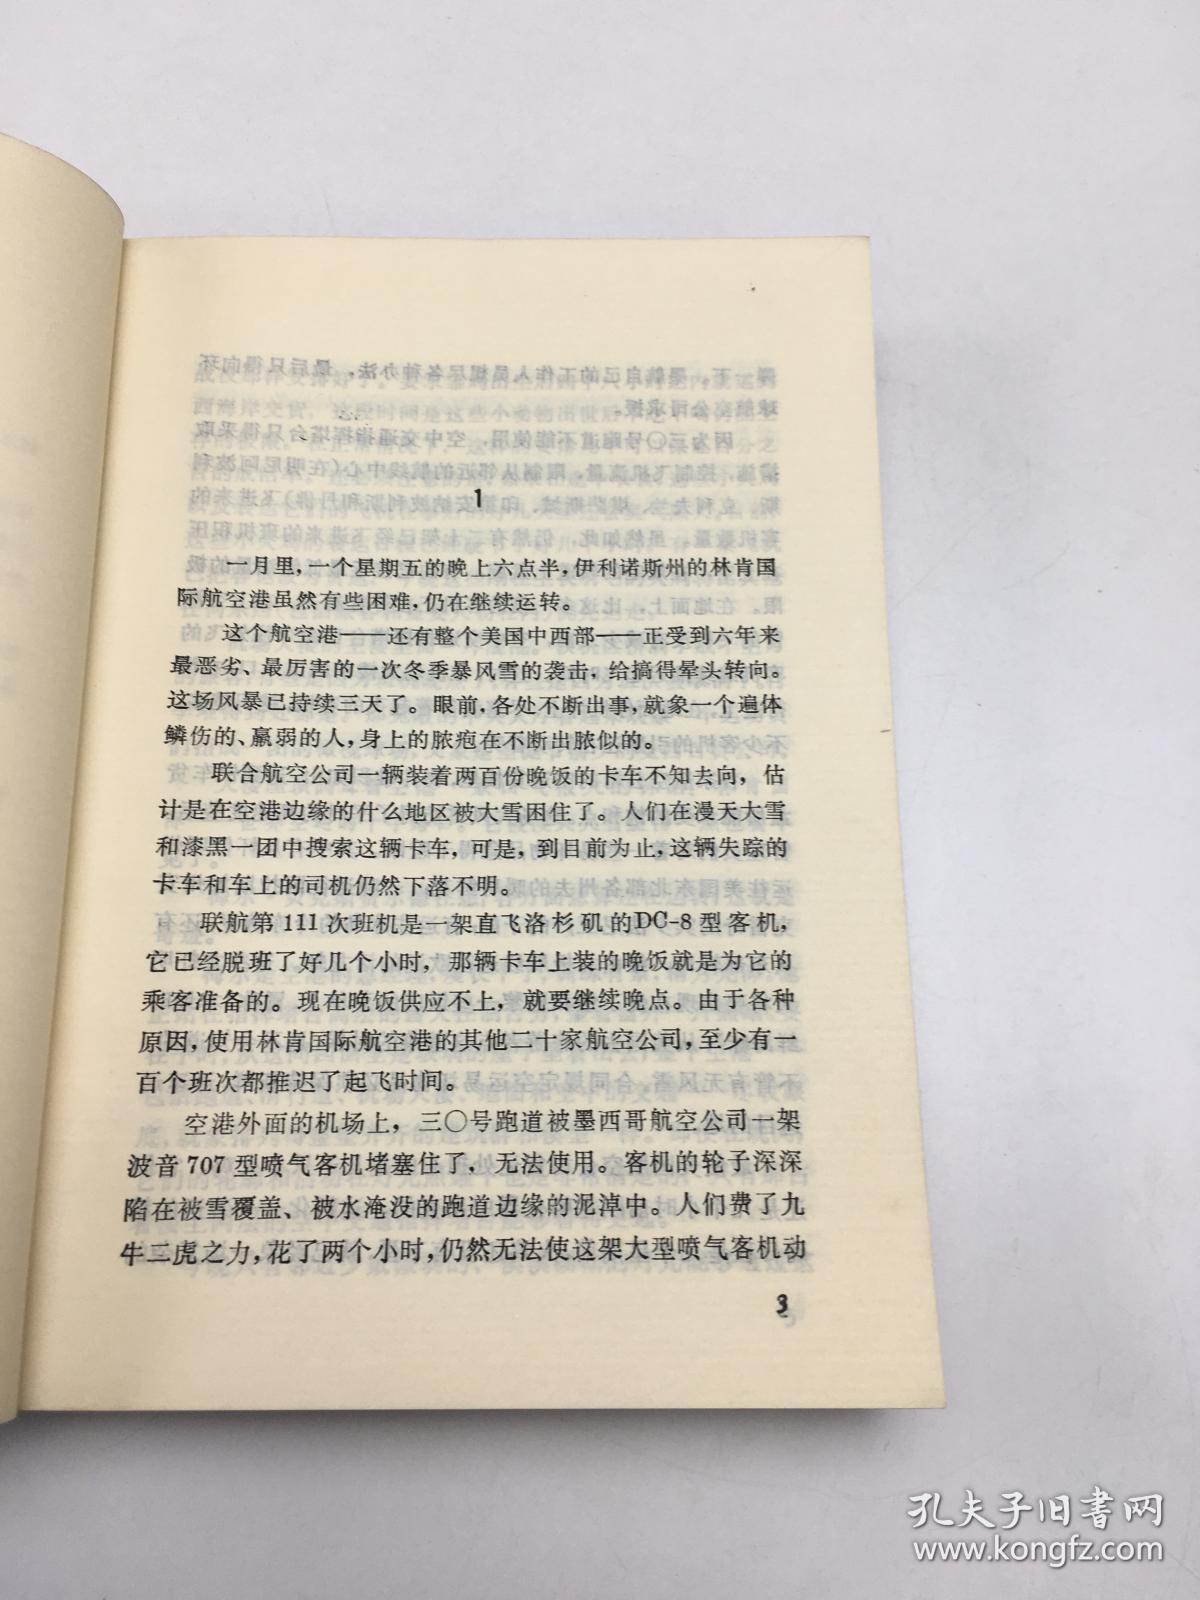 1
一月里，一个星期五的晚上六点半，伊利诺斯州的林肯国
际航空港虽然有些困难，仍在继续运转。
这个航空港——还有整个美国中西部——正受到六年来
最恶劣、最厉害的一次冬季暴风雪的袭击，给搞得晕头转向。
这场风暴已持续三天了。眼前，各处不断出事，就象一个遍体
鳞伤的、羸弱的人，身上的脓疱在不断出脓似的。
联合航空公司一辆装着两百份晚饭的卡车不知去向，估
计是在空港边缘的什么地区被大雪困住了。人们在漫天大雪
和漆黑一团中搜索这辆卡车，可是，到目前为止，这辆失踪的
卡车和车上的司机仍然下落不明。
联航第111次班机是一架直飞洛杉矶的DC-8型客机，
它已经脱班了好几个小时，那辆卡车上装的晚饭就是为它的
乘客准备的。现在晚饭供应不上，就要继续晚点。由于各种
原因，使用林肯国际航空港的其他二十家航空公司，至少有一
百个班次都推迟了起飞时间。
空港外面的机场上，三〇号跑道被墨西哥航空公司一架
波音707型喷气客机堵塞住了，无法使用。客机的轮子深深
陷在被雪覆盖、被水淹没的跑道边缘的泥淖中。人们费了九
牛二虎之力，花了两个小时，仍然无法使这架大型喷气客机动
3
孔夫子旧书网
www.kongfz.com